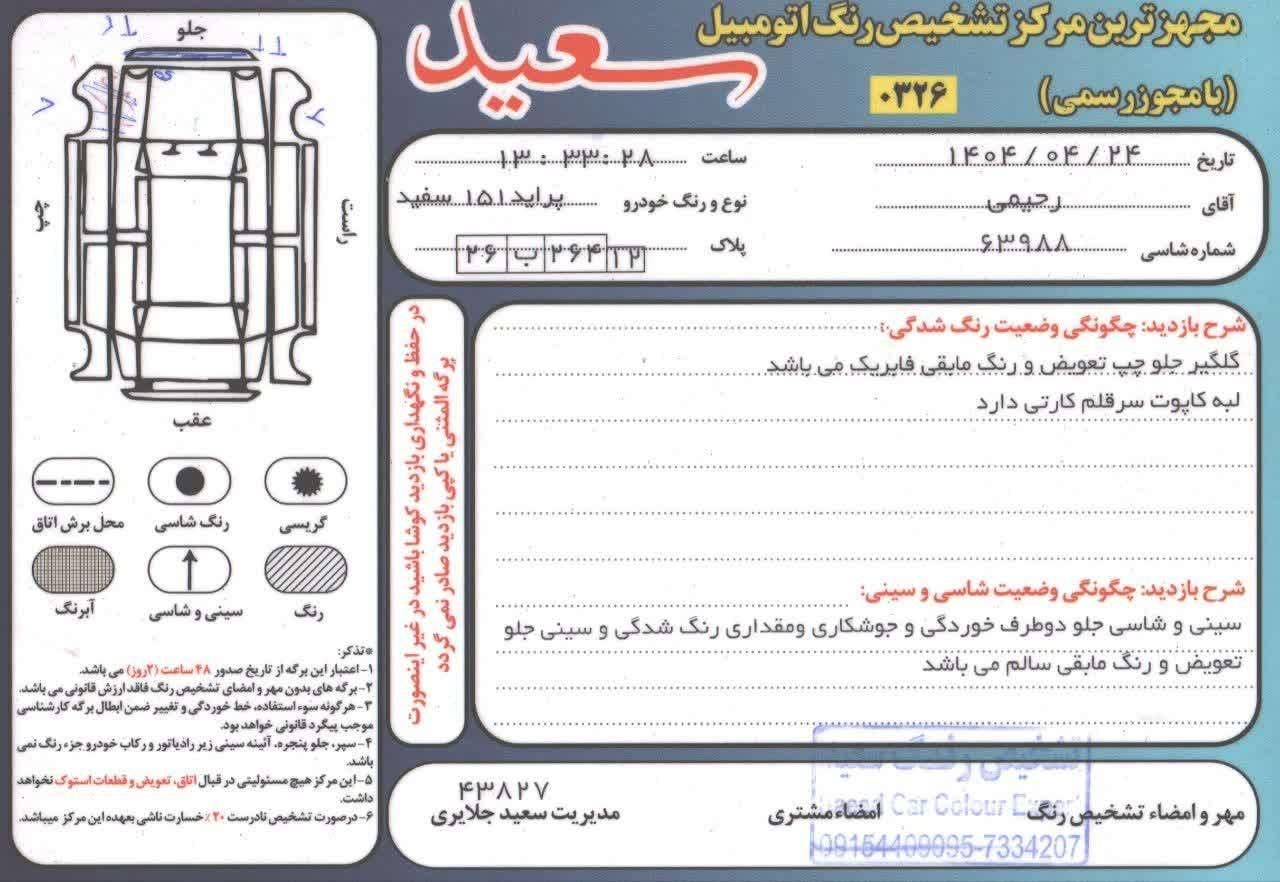 مجهزترین مرکز تشخیص رنگ اتومبیل
سعید
(با مجوز رسمی) ۰۳۲۶
تاریخ ۱۴۰۴/۰۴/۲۴
ساعت ۱۳:۳۳:۲۸
آقای رحیمی
نوع و رنگ خودرو پراید۱۵۱ سفید
شماره شاسی ۶۳۹۸۸
پلاک ۲۶ ب ۲۶۴ ۱۲
شرح بازدید: چگونگی وضعیت رنگ شدگی:
گلگیر جلو چپ تعویض و رنگ مابقی فابریک می باشد
لبه کاپوت سرقلم کارتی دارد
شرح بازدید: چگونگی وضعیت شاسی و سینی:
سینی و شاسی جلو دوطرف خوردگی و جوشکاری ومقداری رنگ شدگی و سینی جلو
تعویض و رنگ مابقی سالم می باشد
در حفظ و نگهداری بازدید کوشا باشید در غیر اینصورت
برگه المثنی یا کپی بازدید صادر نمی گردد
مهر و امضاء تشخیص رنگ
امضاء مشتری
۴۳۸۲۷
مدیریت سعید جلایری
تشخیص رنگ سعید
Saeed Car Colour Expert
09154409095-7334207
جلو
راست
چپ
عقب
گریسی
رنگ شاسی
محل برش اتاق
رنگ
سینی و شاسی
آبرنگ
*تذکر:
۱- اعتبار این برگه از تاریخ صدور ۴۸ ساعت (۲روز) می باشد.
۲- برگه های بدون مهر و امضای تشخیص رنگ فاقد ارزش قانونی می باشد.
۳- هرگونه سوء استفاده، خط خوردگی و تغییر ضمن ابطال برگه کارشناسی
موجب پیگرد قانونی خواهد بود.
۴- سپر، جلو پنجره، آئینه سینی زیر رادیاتور و رکاب خودرو جزء رنگ نمی
باشد.
۵- این مرکز هیچ مسئولیتی در قبال اتاق، تعویض و قطعات استوک نخواهد
داشت.
۶- درصورت تشخیص نادرست ۲۰٪ خسارت ناشی بعهده این مرکز میباشد.